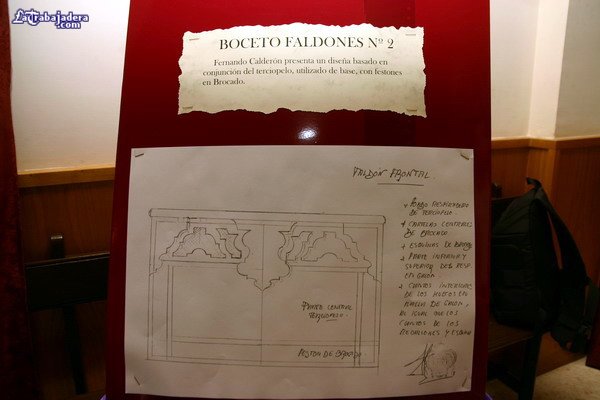 LaTrabajadera
.com
BOCETO FALDONES Nº 2
Fernando Calderón presenta un diseña basado en
conjunción del terciopelo, utilizado de base, con festones
en Brocado.
FALDÓN FRONTAL.
DE TERCIOPELO
+ CARTELAS CENTRALES
DE BROCADO
+ ESQUINAS DE
+ PARTE INFERIOR Y
SUPERIOR DEL
EN GALÓN.
+ CANTOS INTERIORES
DE LOS HUECOS EN
DE GALÓN,
AL IGUAL QUE LOS
CANTOS DE LOS
MEDALLONES, Y
PAÑO CENTRAL
TERCIOPELO
FESTON DE BROCADO